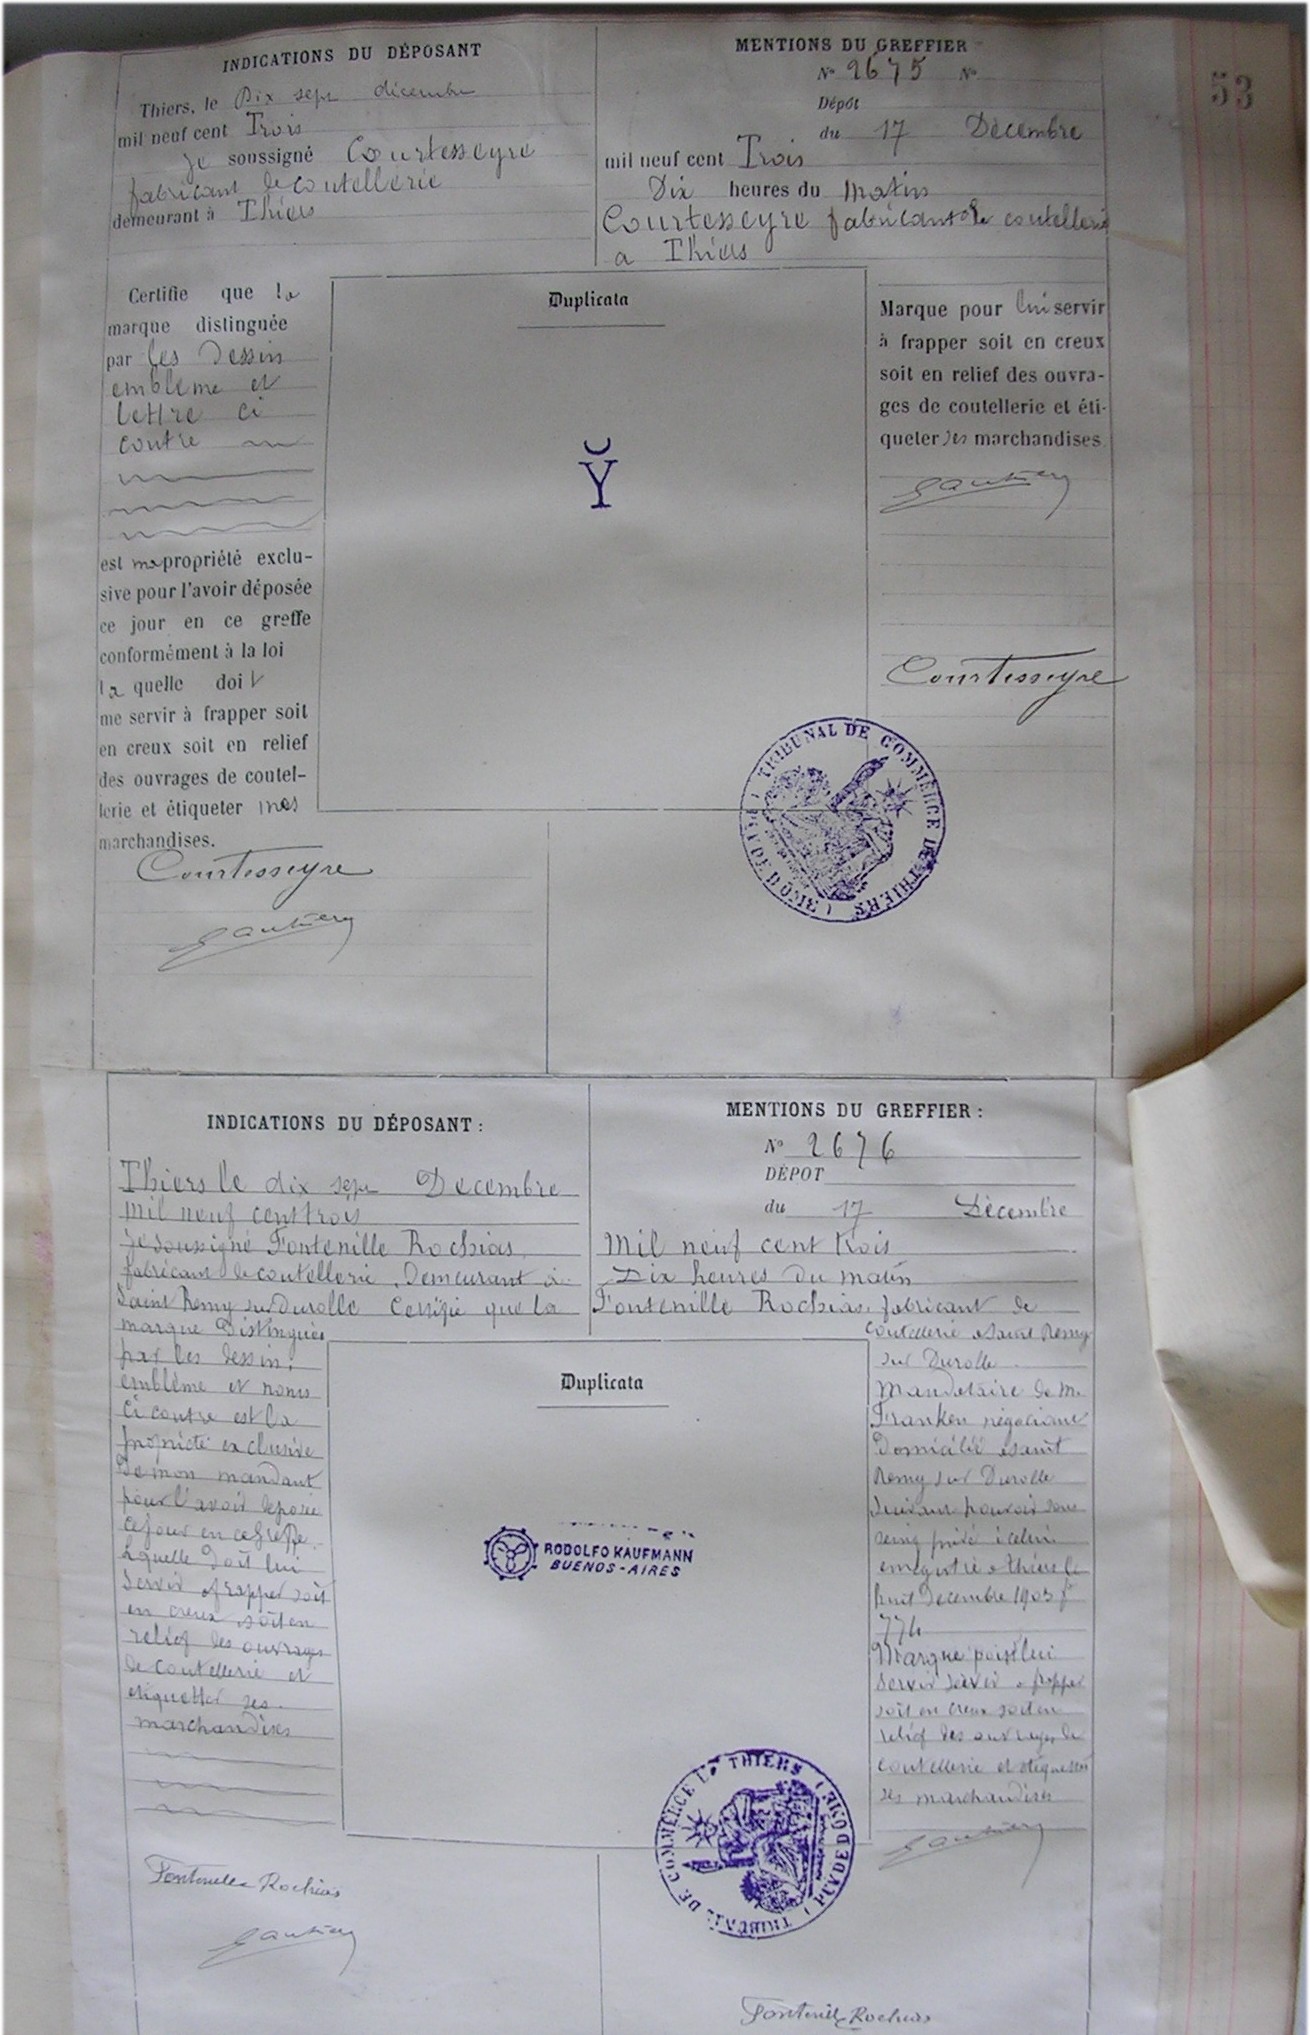 53
INDICATIONS DU DÉPOSANT
Thiers, le Dix sept décembre
mil neuf cent Trois
je soussigné Courtesseyre
fabricant de coutellerie
demeurant à Thiers
MENTIONS DU GREFFIER
N° 2675 N°
Dépôt
du 17 Décembre
mil neuf cent Trois
Dix heures du matin
Courtesseyre fabricant de coutellerie
a Thiers
Certifie que la
marque distinguée
par les Dessin
emblème et
lettre ci
contre
est ma propriété exclu-
sive pour l'avoir déposée
ce jour en ce greffe
conformément à la loi
la quelle doit
me servir à frapper soit
en creux soit en relief
des ouvrages de coutel-
lerie et étiqueter mes
marchandises.
Courtesseyre
Gautier
Duplicata
Y
Marque pour lui servir
à frapper soit en creux
soit en relief des ouvra-
ges de coutellerie et éti-
queter ses marchandises
Gautier
Courtesseyre
TRIBUNAL DE COMMERCE DE THIERS (PUY DE DÔME)
INDICATIONS DU DÉPOSANT :
Thiers le dix sept Decembre
mil neuf cent trois
je soussigné Fontenille Rochias
fabricant de coutellerie Demeurant à
Saint Remy sur Durolle Certifie que la
marque Distinguée
par les dessin,
emblème et noms
ci contre est la
propriété exclusive
de mon mandant
pour l'avoir déposée
ce jour en ce Greffe
Laquelle Doit lui
servir a frapper soit
en creux soit en
relief des ouvrages
de coutellerie et
etiquetter ses
marchandises
Fontenille Rochias
Gautier
MENTIONS DU GREFFIER :
N° 2676
DÉPOT
du 17 Décembre
Mil neuf cent trois
Dix heures du matin
Fontenille Rochias fabricant de
coutellerie a Saint Remy
sur Durolle
Mandataire de M.
Franken négociant
Domicilié a saint
Remy sur Durolle
suivant pouvoir sous
seing privé
enregistré a thiers le
huit Decembre 1903 f°
774
Marque pour lui
servir servir a frapper
soit en creux soit en
relief des ouvrages de
coutellerie et étiquetter
ses marchandises
Gautier
Duplicata
RODOLFO KAUFMANN
BUENOS-AIRES
TRIBUNAL DE COMMERCE DE THIERS (PUY DE DÔME)
Fontenille Rochias